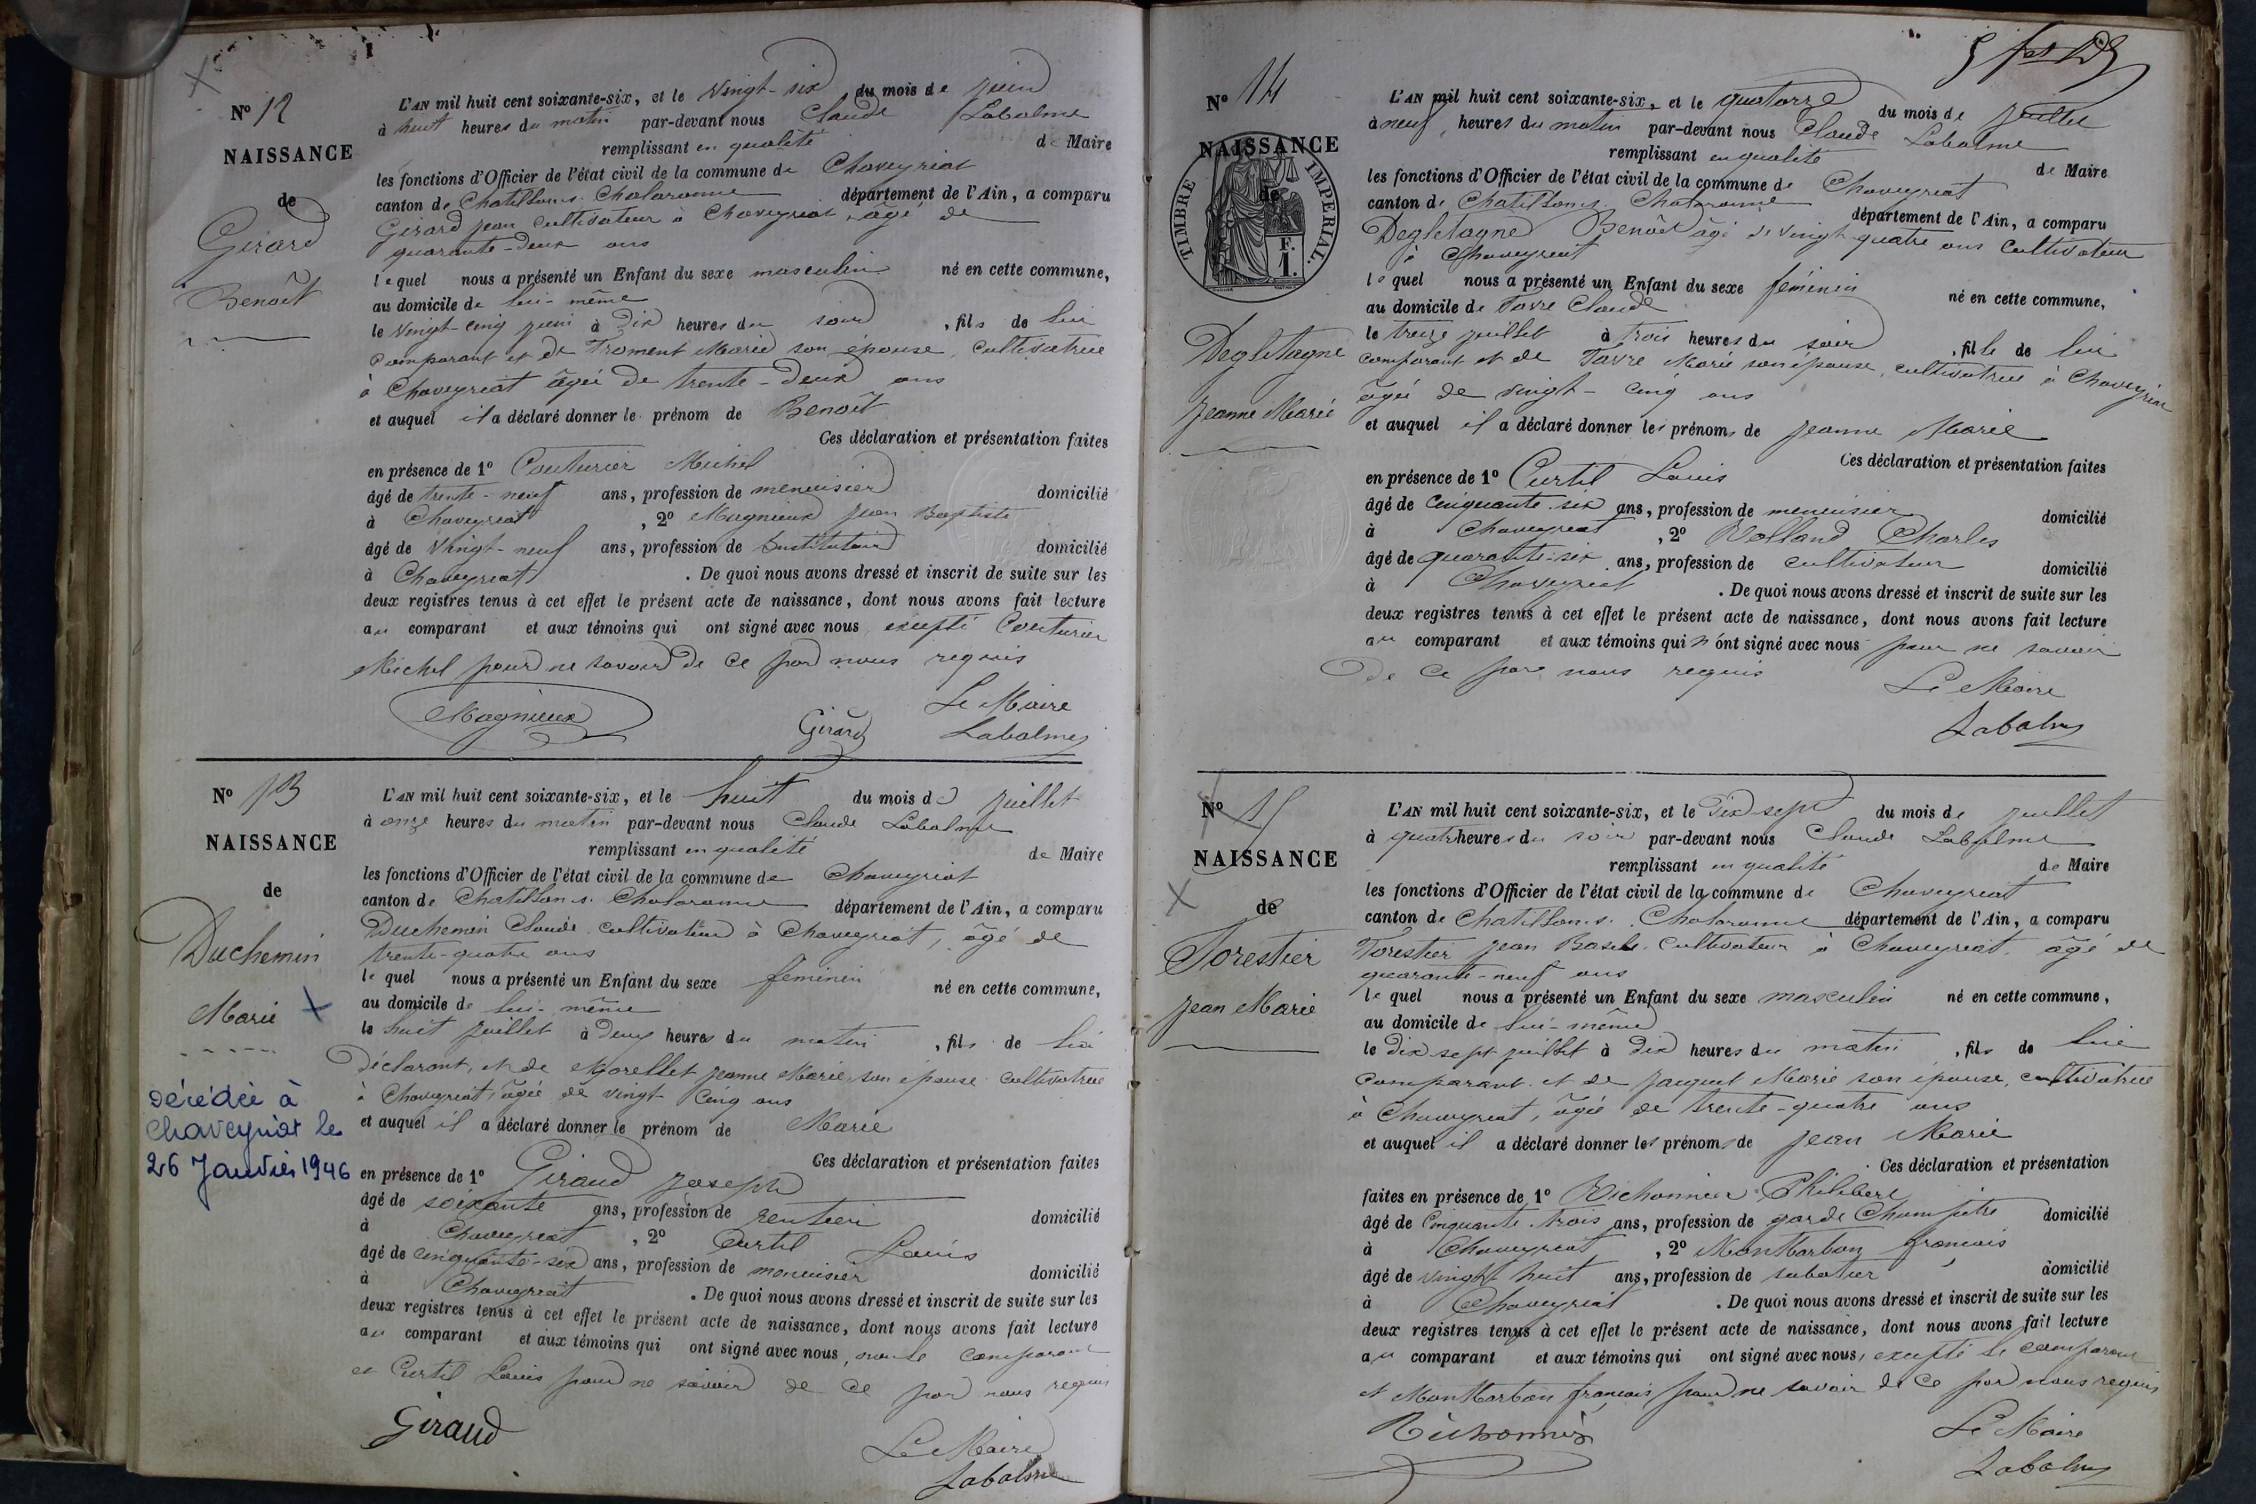 N° 12
NAISSANCE
de
Girard
Benoît
L'AN mil huit cent soixante-six, et le vingt-six du mois de juin
à huit heures du matin par-devant nous Claude Labalme
remplissant en qualité de Maire
les fonctions d'Officier de l'état civil de la commune de Chaveyriat
canton de Chatillon s. Chalaronne département de l'Ain, a comparu
Girard Jean cultivateur à Chaveyriat, âgé de
quarante-deux ans
lequel nous a présenté un Enfant du sexe masculin né en cette commune,
au domicile de lui-même
le vingt-cinq juin à dix heures du soir, fils de lui
comparant et de Froment Marie son épouse, cultivatrice
à Chaveyriat âgée de trente-deux ans
et auquel il a déclaré donner le prénom de Benoît
Ces déclaration et présentation faites
en présence de 1° Couturier Michel
âgé de trente-neuf ans, profession de menuisier domicilié
à Chaveyriat, 2° Magnieux Jean Baptiste
âgé de vingt-neuf ans, profession de Instituteur domicilié
à Chaveyriat. De quoi nous avons dressé et inscrit de suite sur les
deux registres tenus à cet effet le présent acte de naissance, dont nous avons fait lecture
au comparant et aux témoins qui ont signé avec nous excepté Couturier
Michel pour ne savoir de ce par nous requis
Le Maire
Magnieux Girard Labalme
N° 13
NAISSANCE
de
Duchemin
Marie
Décédée à
Chaveyriat le
26 Janvier 1946
L'AN mil huit cent soixante-six, et le huit du mois de juillet
à onze heures du matin par-devant nous Claude Labalme
remplissant en qualité de Maire
les fonctions d'Officier de l'état civil de la commune de Chaveyriat
canton de Chatillon s. Chalaronne département de l'Ain, a comparu
Duchemin Claude cultivateur à Chaveyriat, âgé de
trente-quatre ans
lequel nous a présenté un Enfant du sexe féminin né en cette commune,
au domicile de lui-même
le huit juillet à deux heures du matin, fils de lui
déclarant, et de Morellet Jeanne Marie son épouse cultivatrice
à Chaveyriat, âgée de vingt cinq ans
et auquel il a déclaré donner le prénom de Marie
Ces déclaration et présentation faites
en présence de 1° Giraud Joseph
âgé de soixante ans, profession de rentier domicilié
à Chaveyriat, 2° Curtil Louis
âgé de cinquante-six ans, profession de menuisier domicilié
à Chaveyriat. De quoi nous avons dressé et inscrit de suite sur les
deux registres tenus à cet effet le présent acte de naissance, dont nous avons fait lecture
au comparant et aux témoins qui ont signé avec nous, comparant
et Curtil Louis pour ne savoir de ce par nous requis
Giraud Le Maire
Labalme
N° 14
NAISSANCE
de
TIMBRE IMPERIAL
F.
1.
Degletagne
Jeanne Marie
L'AN mil huit cent soixante-six, et le quatorze du mois de juillet
à neuf heures du matin par-devant nous Claude Labalme
remplissant en qualité de Maire
les fonctions d'Officier de l'état civil de la commune de Chaveyriat
canton de Chatillon s. Chalaronne département de l'Ain, a comparu
Degletagne Benoît âgé de vingt-quatre ans cultivateur
à Chaveyriat
lequel nous a présenté un Enfant du sexe féminin né en cette commune,
au domicile de Favre Claude
le treize juillet à trois heures du soir, fille de lui
comparant et de Favre Marie son épouse, cultivatrice à Chaveyriat
âgée de vingt-cinq ans
et auquel il a déclaré donner les prénoms de Jeanne Marie
Ces déclaration et présentation faites
en présence de 1° Curtil Louis
âgé de cinquante-six ans, profession de menuisier domicilié
à Chaveyriat, 2° Rolland Charles
âgé de quarante-six ans, profession de cultivateur domicilié
à Chaveyriat. De quoi nous avons dressé et inscrit de suite sur les
deux registres tenus à cet effet le présent acte de naissance, dont nous avons fait lecture
au comparant et aux témoins qui n'ont signé avec nous pour ne savoir
de ce par nous requis
Le Maire
Labalme
N° 15
NAISSANCE
de
Forestier
Jean Marie
L'AN mil huit cent soixante-six, et le dix sept du mois de juillet
à quatre heures du soir par-devant nous Claude Labalme
remplissant en qualité de Maire
les fonctions d'Officier de l'état civil de la commune de Chaveyriat
canton de Chatillon s. Chalaronne département de l'Ain, a comparu
Forestier Jean Basile cultivateur à Chaveyriat, âgé de
quarante-neuf ans
lequel nous a présenté un Enfant du sexe masculin né en cette commune,
au domicile de lui-même
le dix sept juillet à dix heures du matin, fils de lui
comparant et de Jaquet Marie son épouse, cultivatrice
à Chaveyriat, âgée de trente-quatre ans
et auquel il a déclaré donner les prénoms de Jean Marie
Ces déclaration et présentation
faites en présence de 1° Richonnier Philibert
âgé de cinquante-trois ans, profession de garde champêtre domicilié
à Chaveyriat, 2° Montbarbon françois
âgé de vingt huit ans, profession de sabotier domicilié
à Chaveyriat. De quoi nous avons dressé et inscrit de suite sur les
deux registres tenus à cet effet le présent acte de naissance, dont nous avons fait lecture
au comparant et aux témoins qui ont signé avec nous, excepté le comparant
et Montbarbon françois pour ne savoir de ce par nous requis
Richonnier Le Maire
Labalme